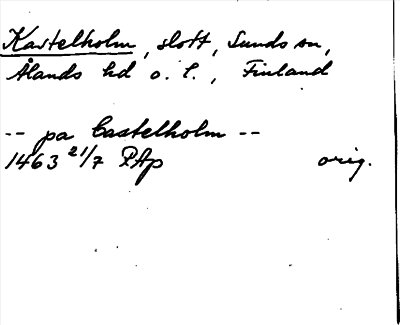 Kastelholm, slott, Sunds sn,
Ålands hd o. l., Finland
-- pa Castelholm --
1463 21/7 PAp orig.